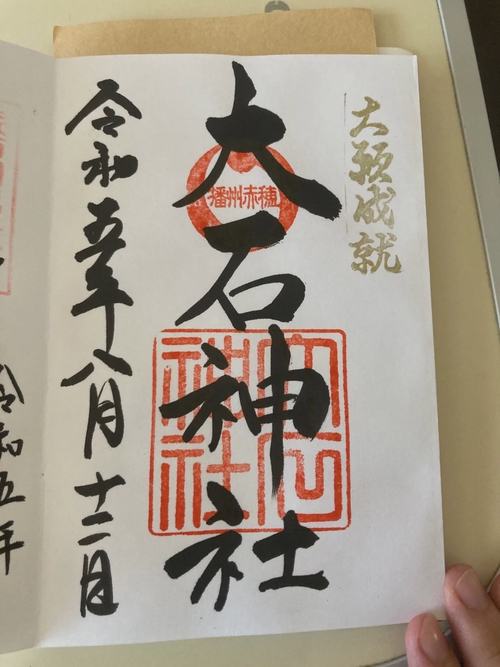 大願成就
大石神社
播州赤穂
大石
神社
令和五年八月十二日
令和五年